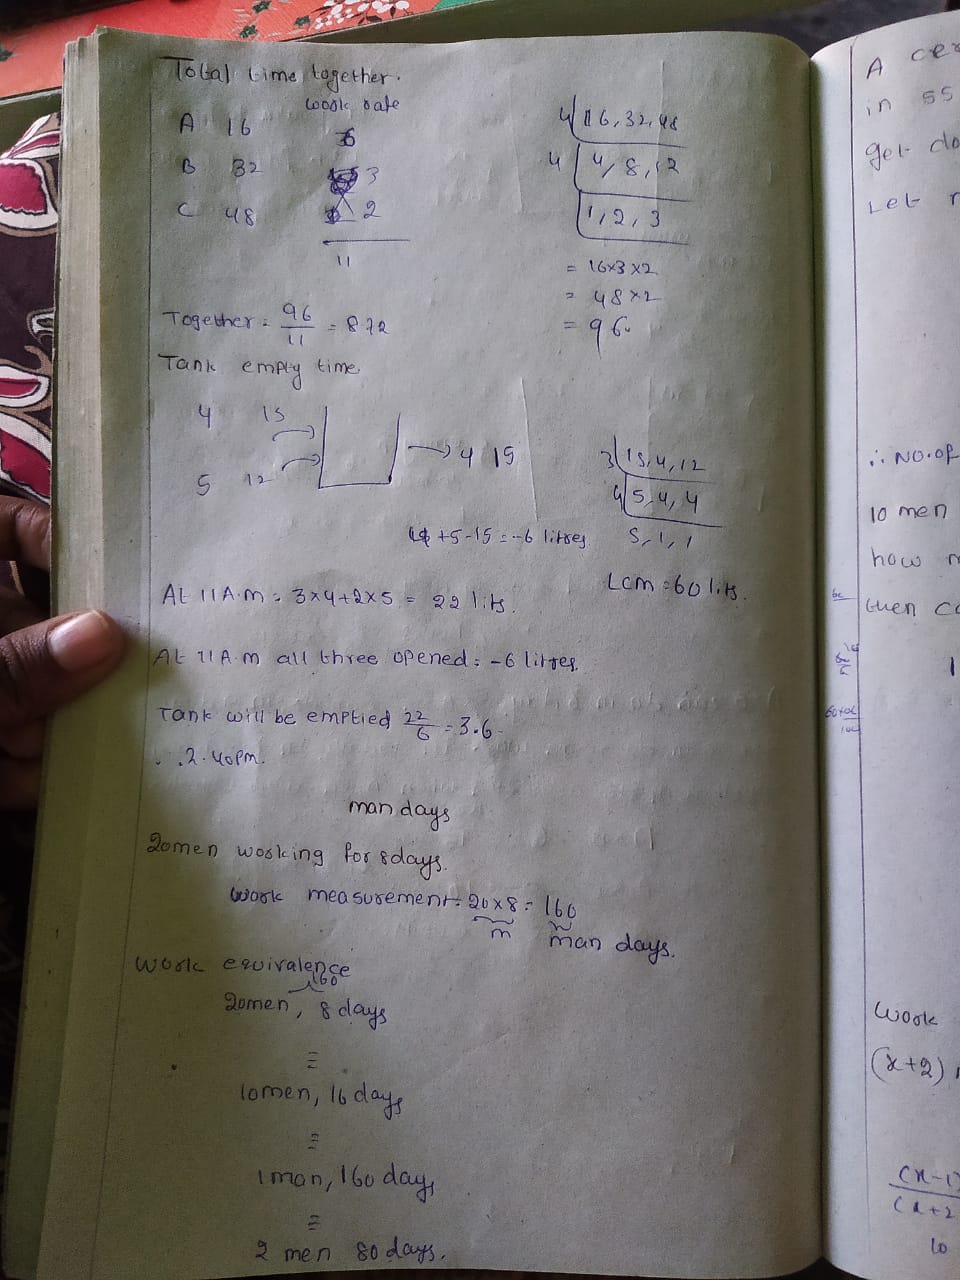 Total time together.
work rate
A 16 6
B 32 3
C 48 2
11
4 16, 32, 48
4 4, 8, 12
1, 2, 3
= 16x3x2
= 48x2
= 96.
Together = 96/11 = 8.72
Tank empty time.
4 15
5 12
4 15
3 15, 4, 12
4 5, 4, 4
5, 1, 1
4 + 5 - 15 = -6 litres.
Lcm = 60 lits.
At 11A.m = 3x4+2x5 = 22 lits.
At 11A.m all three opened = -6 litres.
Tank will be emptied 22/6 = 3.6
∴ 2.40pm.
man days
20men working for 8days.
work measurement = 20x8 = 160
m man days.
work equivalence
160
20men, 8 days
≡
10men, 16 days
≡
1man, 160 days
≡
2 men 80 days.
A cer
in 55
get do
Let
∴ NO.OF
10 men
how
then co
Work
(x+2)
(x-1)
(x+2
10